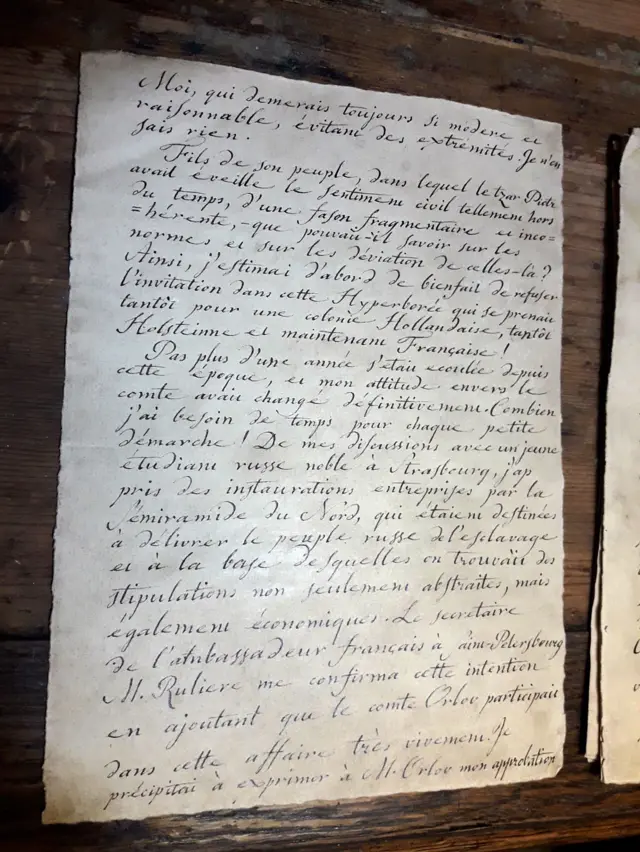 Moi, qui demerais toujours si modere et
raisonnable, évitant des extremités. Je n'en
sais rien.
Fils de son peuple, dans lequel le tzar Piotr
avait éveille le sentiment civil tellement hors
du temps, d'une fason fragmentaire et inco=
=hérente,-que pouvait-il savoir sur les
normes et sur les déviation de celles-la?
Ainsi, j'estimai d'abord de bienfait de refuser
l'invitation dans cette Hyperboreé qui se prenait
tantôt pour une colonie Hollandaise, tantôt
Holsteinne et maintenant Française!
Pas plus d'une année s'etait ecoulée depuis
cette époque, et mon attitude envers le
comte avait changé définitivement. Combien
j'ai besoin de temps pour chaque petite
démarche! De mes discussions avec un jeune
étudiant russe noble a Strasbourg, j'ap
pris des instaurations entreprises par la
Sémiramide du Nord, qui étaient destinées
à délivrer le peuple russe de l'esclavage
et à la base desquelles on trouvait des
stipulations non seulement abstraites, mais
également économiques. Le secrétaire
de l'ambassadeur français à aint-Petersbourg
M. Ruliere me confirma cette intention
en ajoutant que le comte Orlov participait
dans cette affaire très vivement. Je
précipitai à exprimer à M. Orlov mon approbation